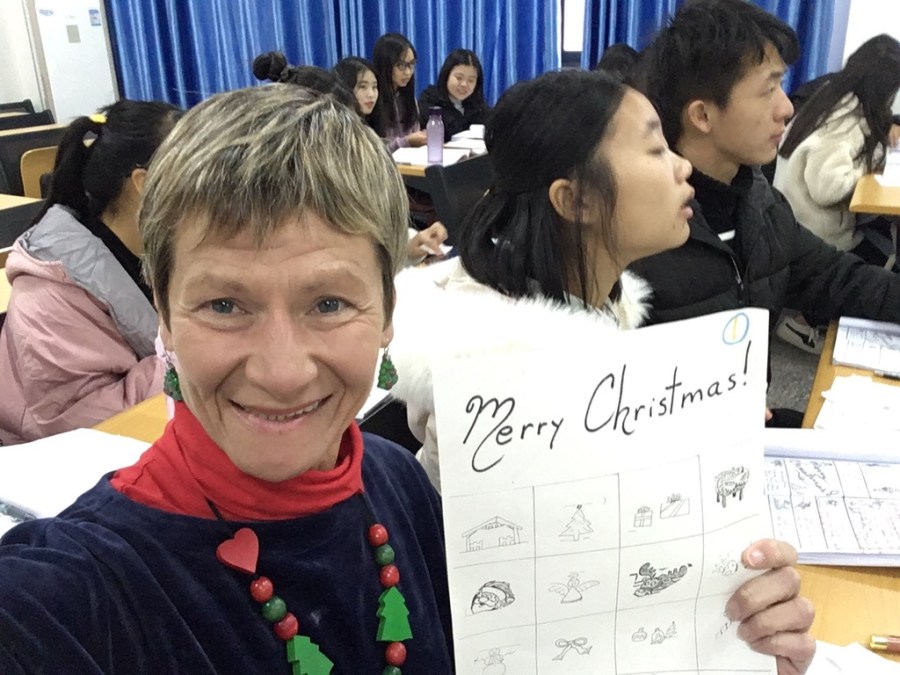 1
Merry Christmas!